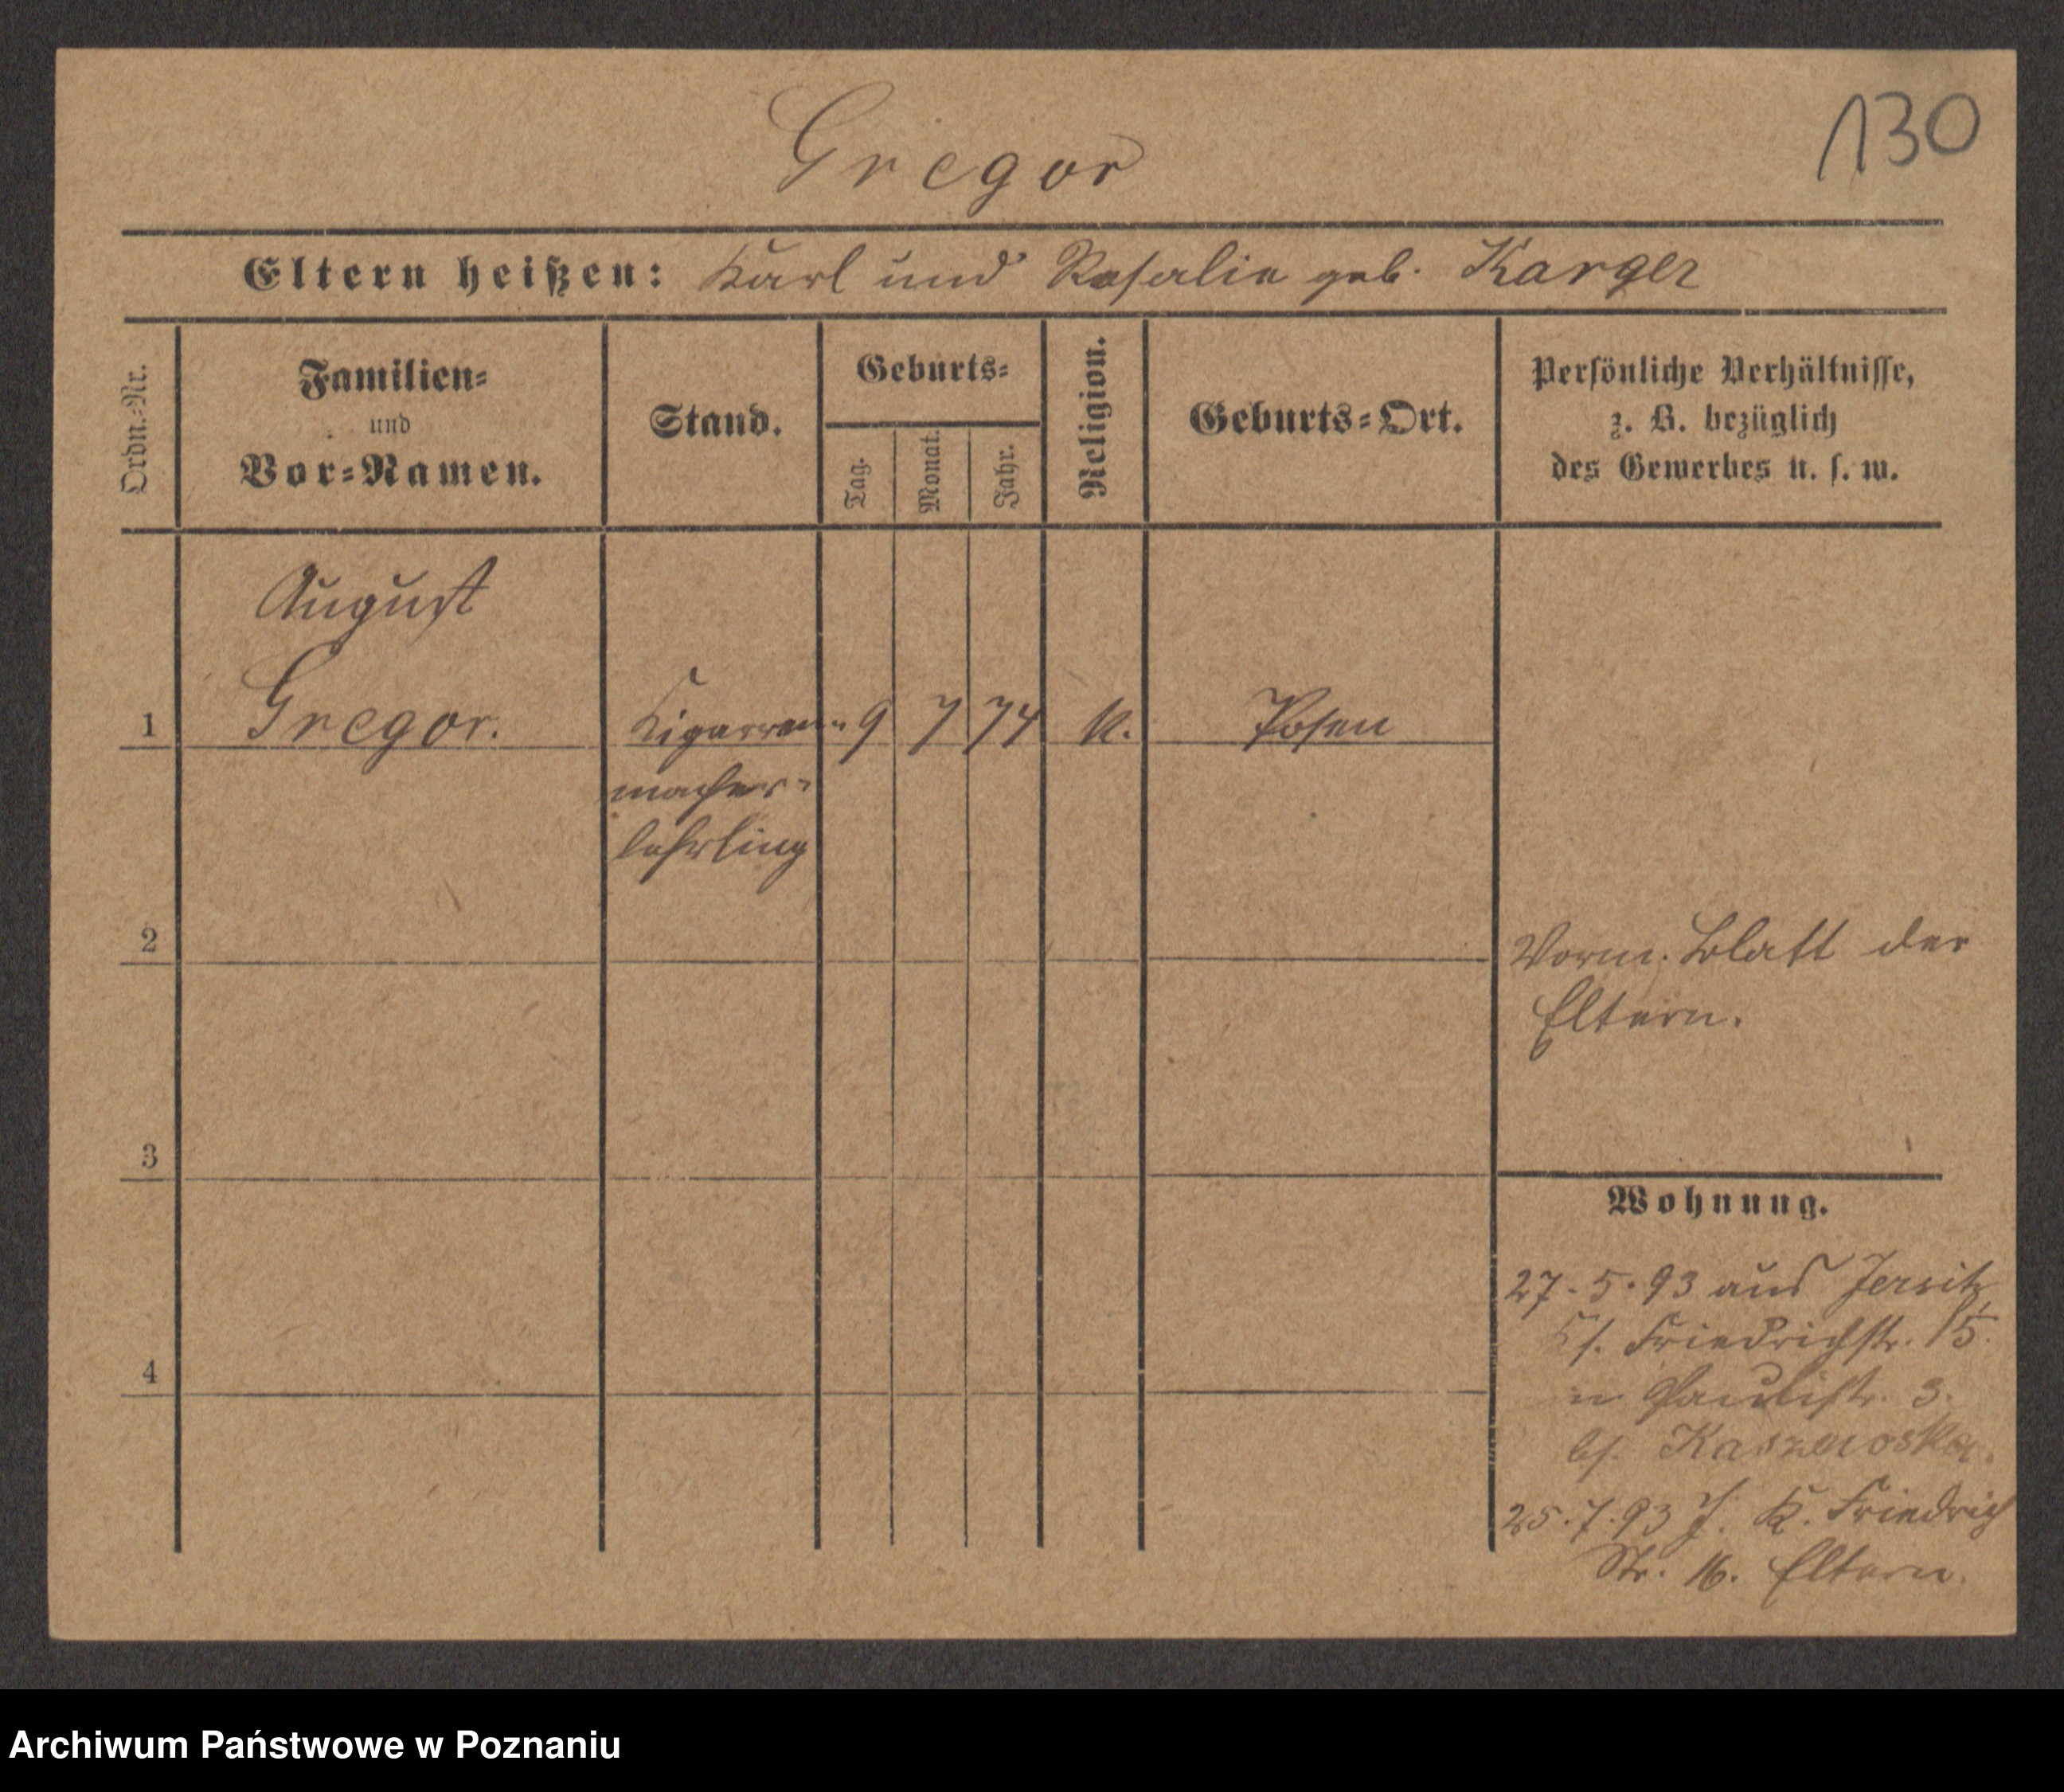 Gregor
130
Eltern heißen: Karl und Rosalie geb. Karger
Ordn.-Nr.
Familien-
und
Vor-Namen.
Stand.
Geburts-
Tag.
Monat.
Jahr.
Religion.
Geburts-Ort.
Persönliche Verhältnisse,
z. B. bezüglich
des Gewerbes u. s. w.
August
1 Gregor. Zigarren- 9 7 74 K. Posen
macher-
lehrling
2
Vorm. Blatt der
Eltern.
3
Wohnung.
27.5.93 aus Jersitz
Friedrichstr. 15.
4
Paulistr. 3.
bei
25.7.93 J. K. Friedrich
Str. 16. Eltern.
Archiwum Państwowe w Poznaniu